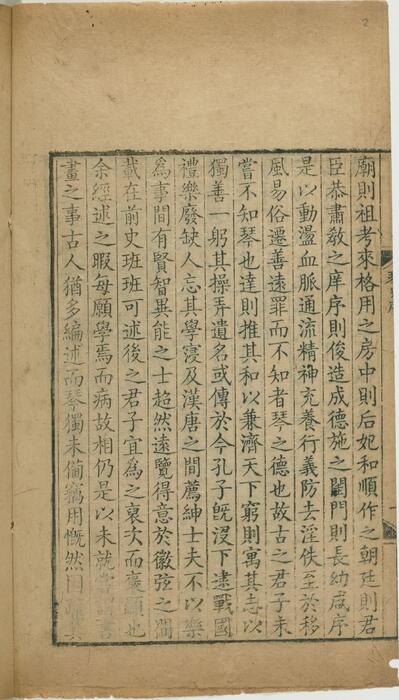 廟則祖考來格用之房中則后妃和順作之朝廷則君
臣恭肅教之庠序則俊造成德施之閨門則長幼咸序
是以動盪血脈通流精神充養行義防去淫佚至於移
風易俗遷善遠罪而不知者琴之德也故古之君子未
嘗不知琴也達則推其和以兼濟天下窮則寓其志以
獨善一躬其操弄遺名或傳於今孔子旣沒下逮戰國
禮樂廢缺人忘其學寖及漢唐之間薦紳士夫不以樂
爲事間有賢智異能之士超然遠覽得意於徽弦之間
載在前史班班可述後之君子宜爲之裒次而襃顯也
余經述之暇每願學焉而病故相仍是以未就
畫之事古人猶多編述而琴獨未備竊用慨然
2